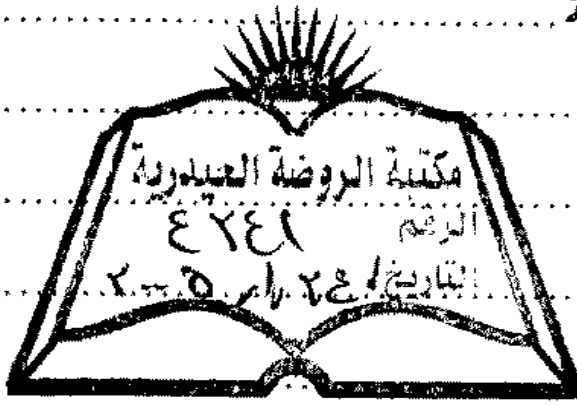 مكتبة الروضة الحيدرية
الرقم ٤٢٤١
التاريخ